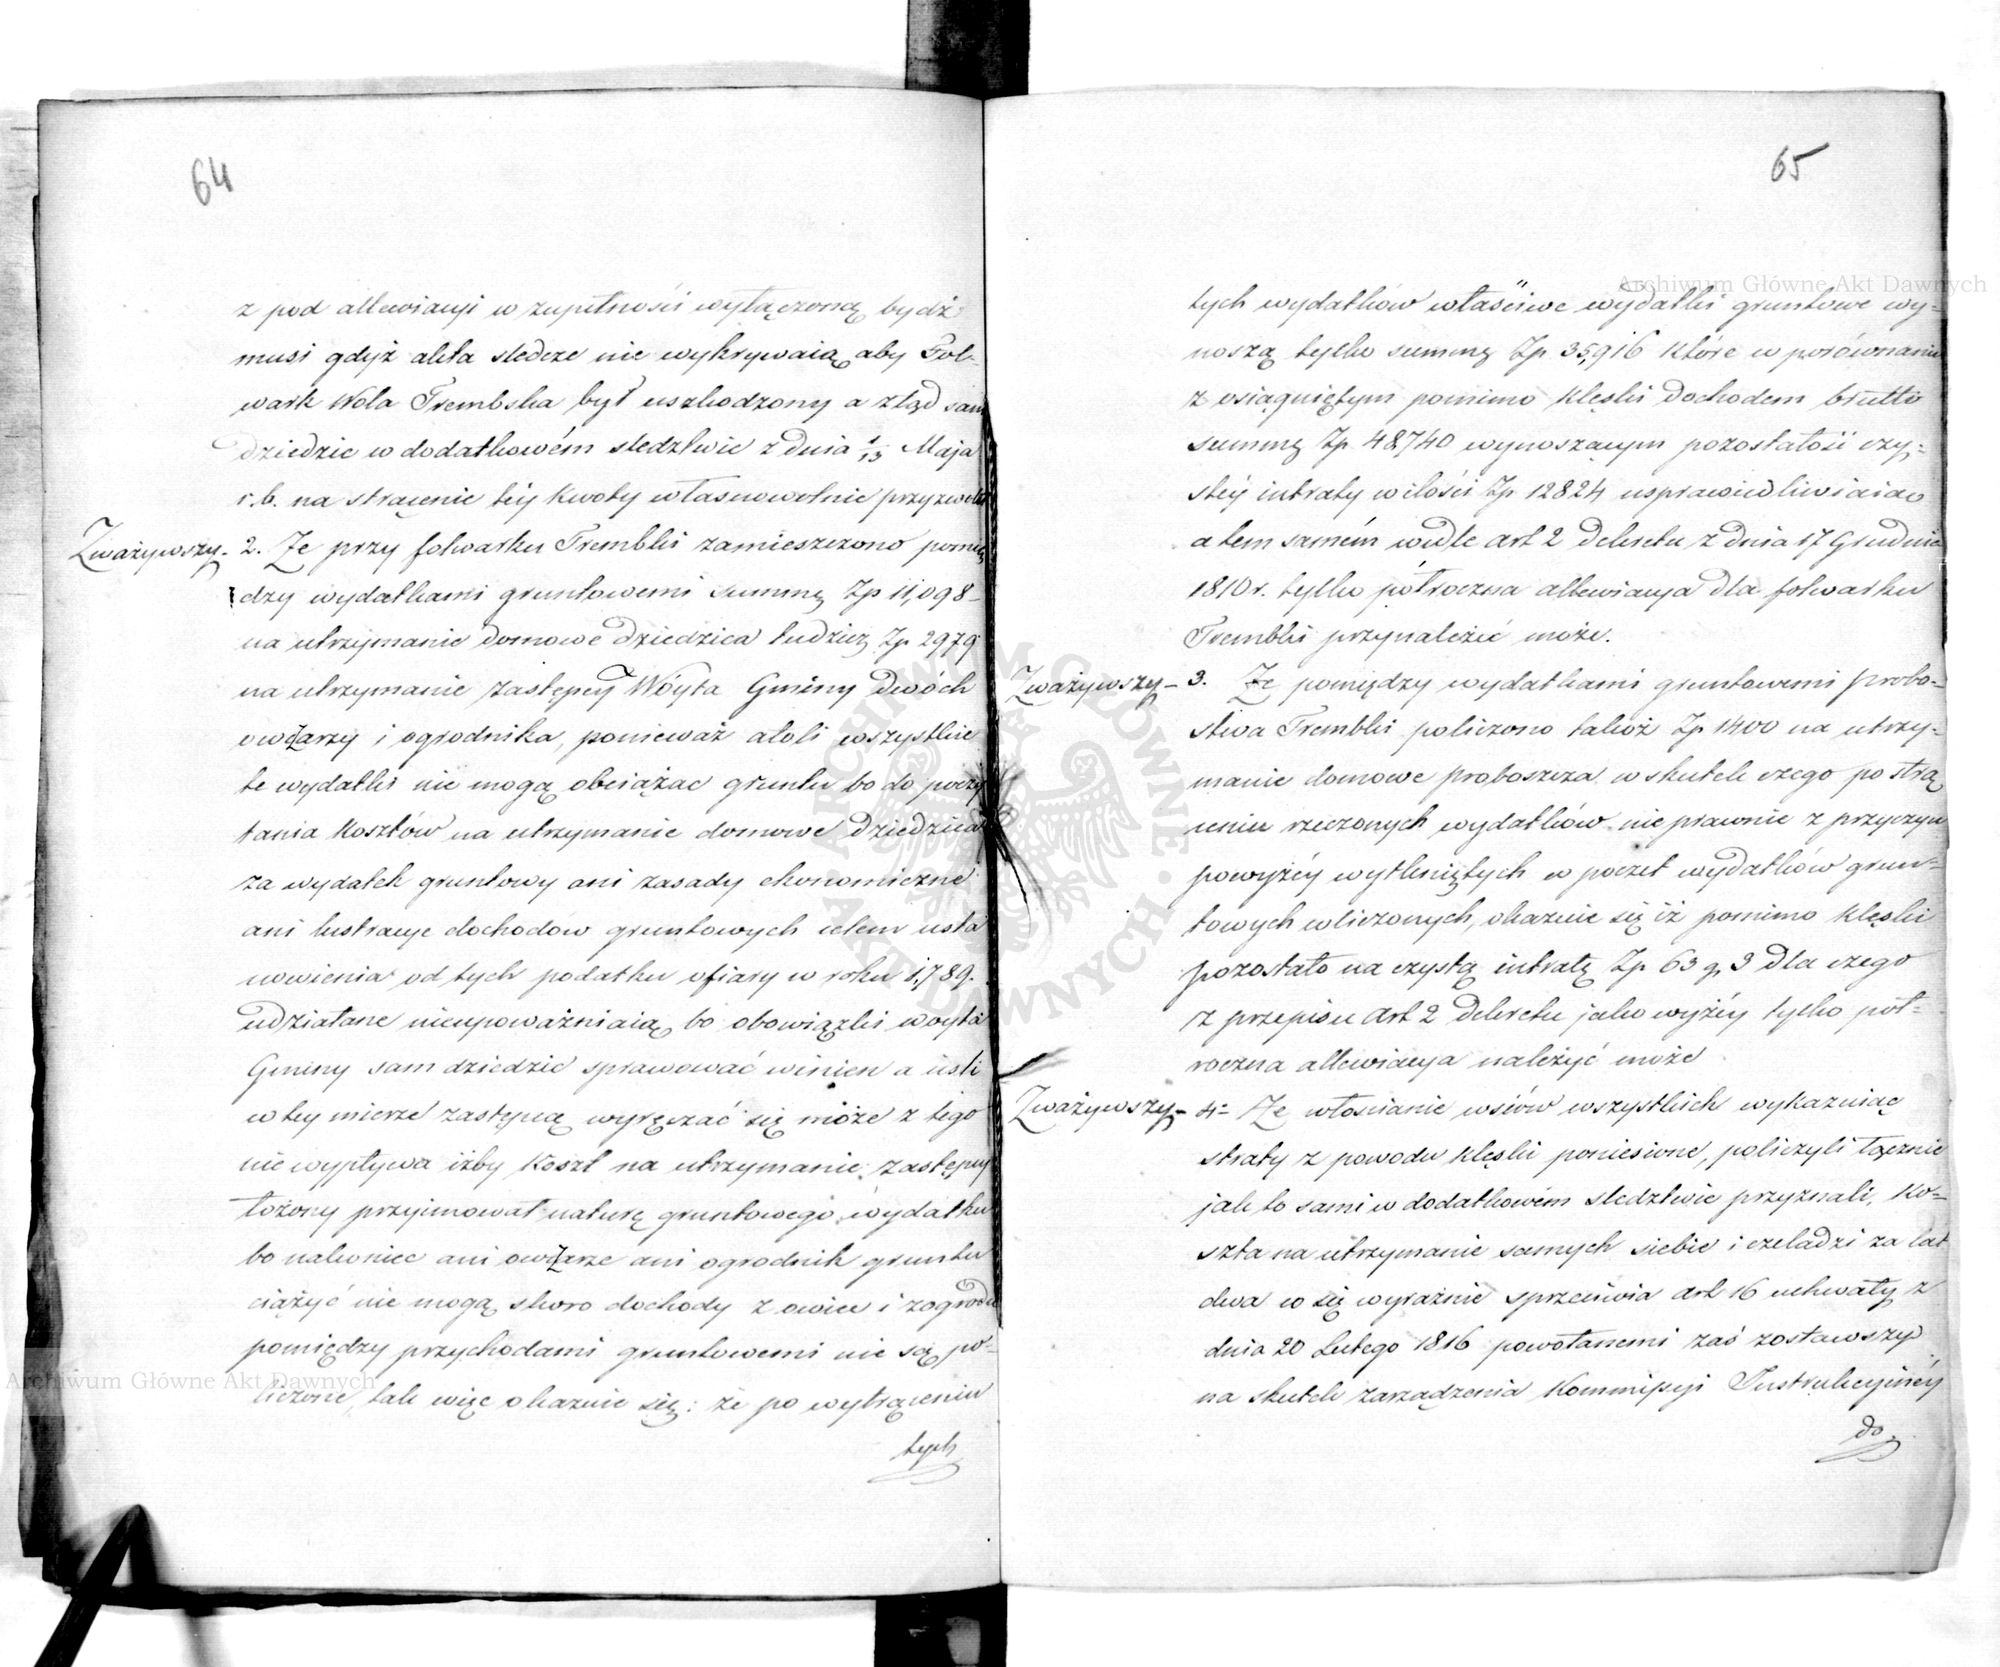 64
z pod allewiacyi w zupełności wyłączoną bydź
musi gdyż akta śledcze nie wykrywaią aby Fol-
wark Wola Trembska był uszkodzony a ztąd sam
dziedzic w dodatkowém śledztwie z dnia 1/13 Maja
r.b. na strącenie téy kwoty własnowolnie przyzwolił
Zważywszy- 2. Że przy folwarku Trembki zamieszczono pomię
dzy wydatkami gruntowemi summę Zp 11,098-
na utrzymanie domowe dziedzica tudzież Zp 2979
na utrzymanie zastępcy Wóyta Gminy dwóch
owczarzy i ogrodnika, ponieważ atoli wszystkie
te wydatki nie mogą obciążac gruntu bo do poczy
tania kosztów na utrzymanie domowe dziedzica
za wydatek gruntowy ani zasady ekonomiczne
ani lustracye dochodów gruntowych celem usta
nowienia od tych podatku ofiary w roku 1789.
udziałane nieupoważniaią bo obowiązki woyta
Gminy sam dziedzic sprawować winien a iesli
w tey mierze zastępcą wyręczać się może z tego
nie wypływa iżby koszt na utrzymanie zastępcy
łożony przyimował naturę gruntowego wydatku
bo nakoniec ani owczarze ani ogrodnik gruntu
ciążyć nie mogą skoro dochody z owiec i zogrodu
pomiędzy przychodami gruntowemi nie są po-
liczone, tak więc okazuie się: że po wytrąceniu
tych
65
tych wydatków właściwe wydatki gruntowe wy-
noszą tylko summę Zp 35,916 które w porównaniu
z osiągniętym pomimo klęski dochodem brutto
summę Zp 48740 wynoszącym pozostałość czy-
stéy intraty w ilości Zp 12824 usprawiedliwiaiąc
a tem samém wedle art 2 dekretu z dnia 17 Grudnia
1810 r. tylko półroczna allewiacya dla folwarku
Trembki przynależeć może.
Zważywszy- 3. Że pomiędzy wydatkami gruntowemi probo-
stwa Trembki policzono takoż Zp 1400 na utrzy-
manie domowe proboszcza w skutek czego po strą
ceniu rzeczonych wydatków nie prawnie z przyczyn
powyżéy wytkniętych w poczet wydatków grun-
towych wliczonych, okazuie się iż pomimo klęski
pozostało na czystą intratę Zp 63 g. 3 dla czego
z przepisu Art 2 dekretu jako wyżéy tylko pół-
roczna allewiacya należyć może
Zważywszy- 4- Że włościanie wsiów wszystkich wykazuiąc
straty z powodu klęski poniesione, policzyli łącznie
jak to sami w dodatkowém śledztwie przyznali, ko-
szta na utrzymanie samych siebie i czeladzi za lat
dwa co się wyraźnie sprzeciwia art 16 uchwały z
dnia 20 Lutego 1816 powołanemi zaś zostawszy
na skutek zarządzenia Kommissyi Instrukcyinéy
do
Archiwum Główne Akt Dawnych
Archiwum Główne Akt Dawnych
ARCHIWUM GŁÓWNE · AKT DAWNYCH ·